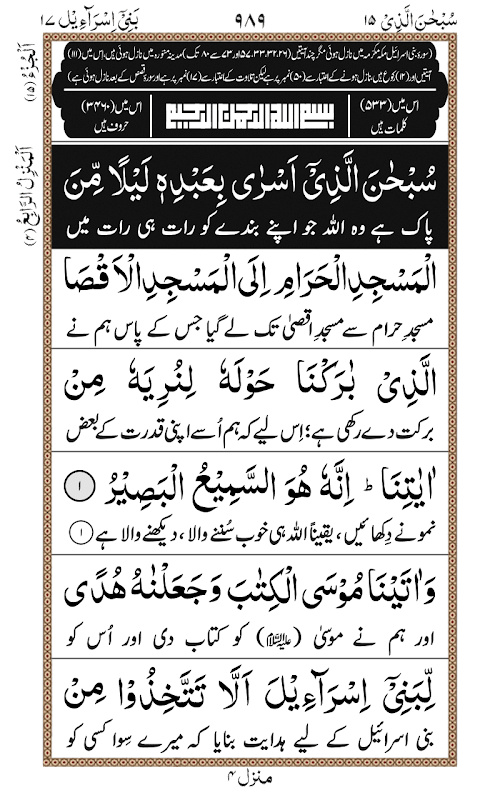 سُبْحٰنَ الَّذِیْۤ ۱۵
۹۸۹
بَنِیْۤ اِسْرَآءِیْل ۱۷
اَلْجُزْءُ (۱۵)
اَلْمَنْزِلُ الرَّابِعُ (۴)
(سورۂ بنی اسرائیل مکہ مکرمہ میں نازل ہوئی مگر چند آیتیں (۲۶، ۳۲، ۳۳، ۵۷ اور ۷۳ سے ۸۰ تک) مدینہ منورہ میں نازل ہوئی ہیں، اس میں (۱۱۱)
آیتیں اور (۱۲) رکوع ہیں نازل ہونے کے اعتبار سے (۵۰) نمبر پر ہے لیکن تلاوت کے اعتبار سے (۱۷) نمبر پر ہے اور سورۂ قصص کے بعد نازل ہوئی ہے)
اس میں (۵۳۳) کلمات ہیں
بسم الله الرحمن الرحیم
اس میں (۳۴۶۰) حروف ہیں
سُبْحٰنَ الَّذِیْۤ اَسْرٰی بِعَبْدِهٖ لَیْلًا مِّنَ
پاک ہے وہ اللہ جو اپنے بندے کو رات ہی رات میں
الْمَسْجِدِ الْحَرَامِ اِلَی الْمَسْجِدِ الْاَقْصَا
مسجدِ حرام سے مسجدِ اقصیٰ تک لے گیا جس کے پاس ہم نے
الَّذِیْ بٰرَكْنَا حَوْلَهٗ لِنُرِیَهٗ مِنْ
برکت دے رکھی ہے؛ اِس لیے کہ ہم اُسے اپنی قدرت کے بعض
اٰیٰتِنَا ؕ اِنَّهٗ هُوَ السَّمِیْعُ الْبَصِیْرُ ۱
نمونے دِکھائیں، یقیناً اللہ ہی خوب سُننے والا، دیکھنے والا ہے ۱
وَاٰتَیْنَا مُوْسَی الْكِتٰبَ وَجَعَلْنٰهُ هُدًی
اور ہم نے موسیٰ (علیہ السلام) کو کتاب دی اور اُس کو
لِّبَنِیْۤ اِسْرَآءِیْلَ اَلَّا تَتَّخِذُوْا مِنْ
بنی اسرائیل کے لیے ہدایت بنایا کہ میرے سِوا کسی کو
منزل ۴